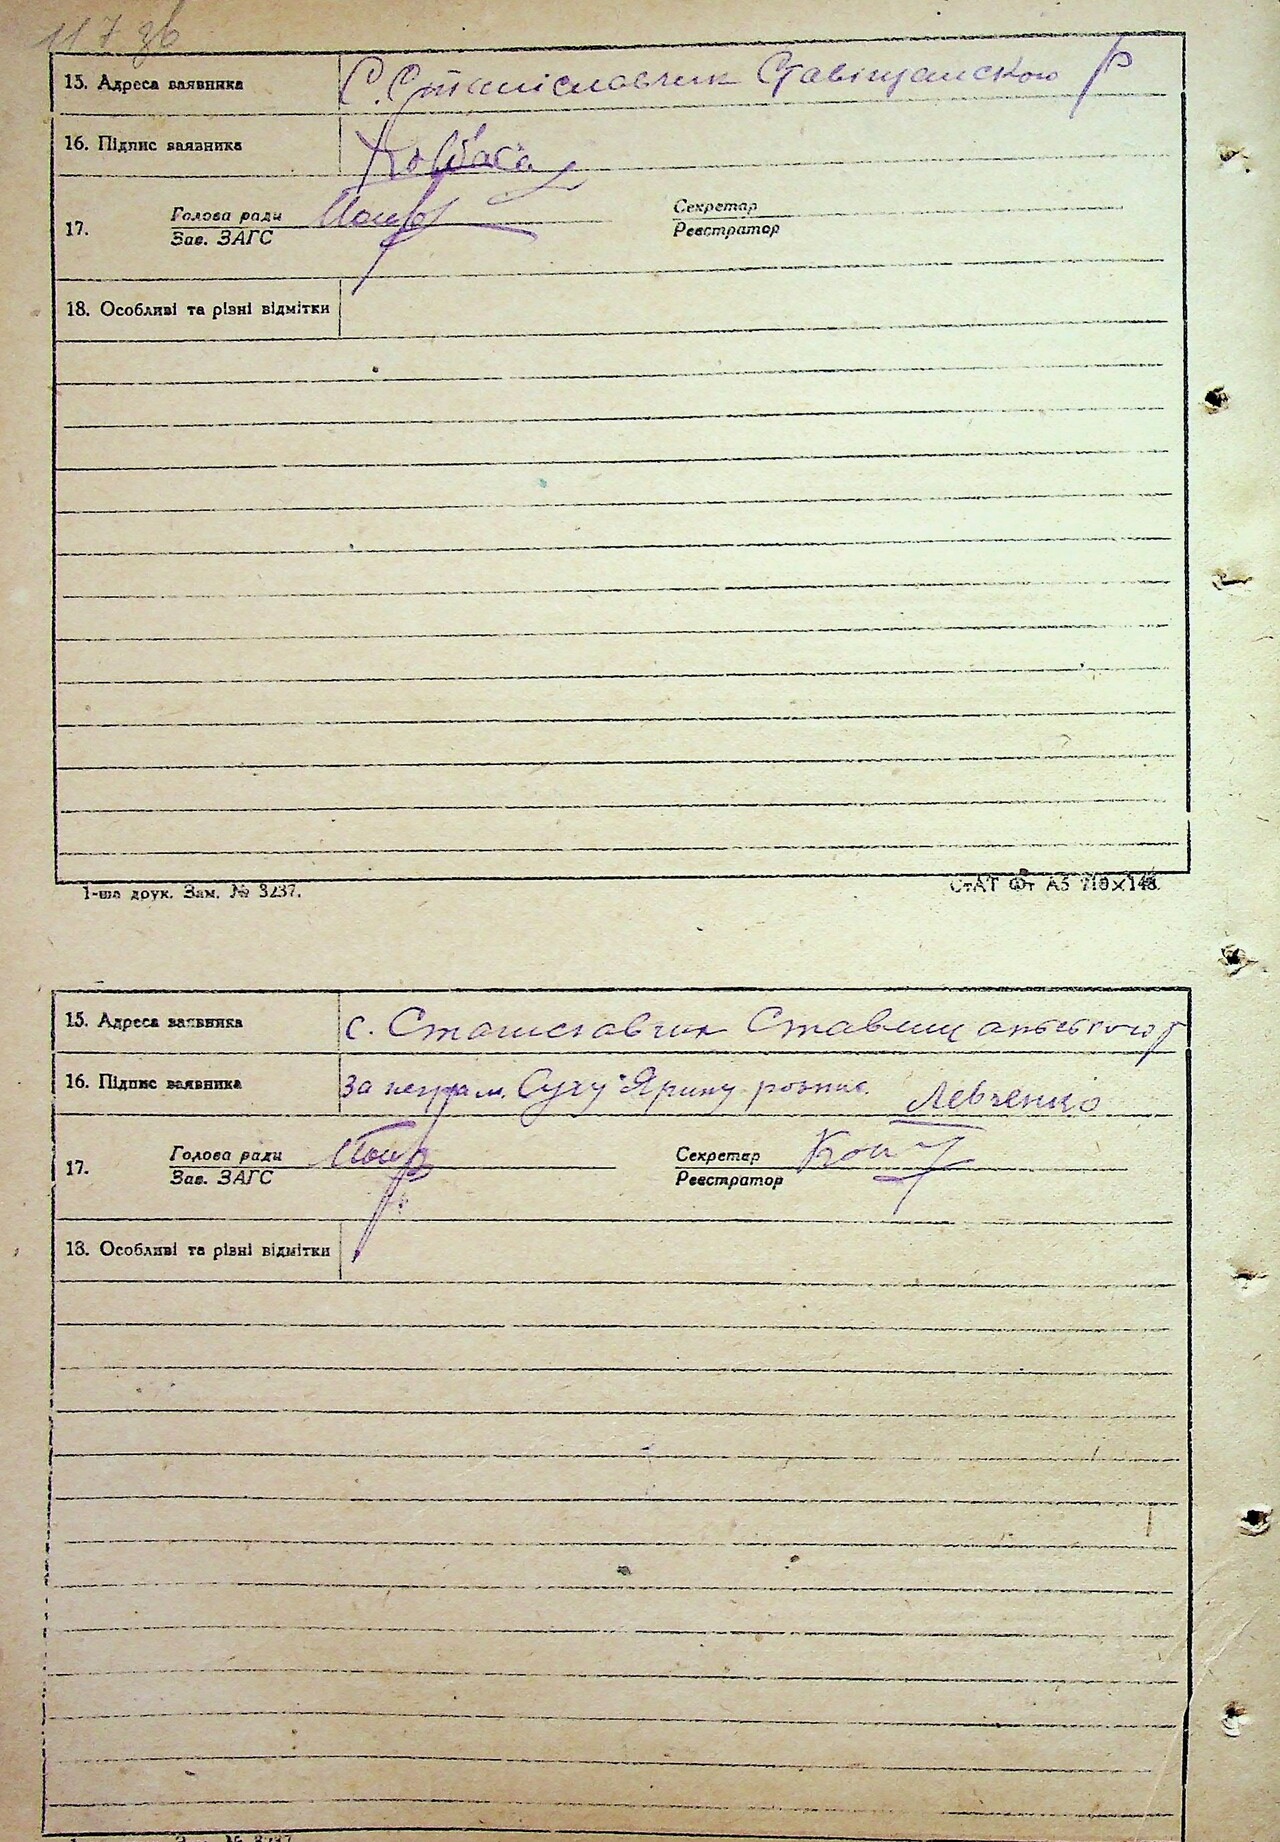 117 зв
15. Адреса заявника С. Станіславчик Ставищанского р
16. Підпис заявника Ковбаса
17. Голова ради Секретар
Зав. ЗАГС Реєстратор
18. Особливі та різні відмітки
1-ша друк. Зам. № 3237. СтАТ Фт А5 210×148.
15. Адреса заявника с. Станиславчик Ставищанського р
16. Підпис заявника За неграм. Суху Ярину розпис. Левченко
17. Голова ради Секретар
Зав. ЗАГС Реєстратор
18. Особливі та різні відмітки
Зам. № 3237